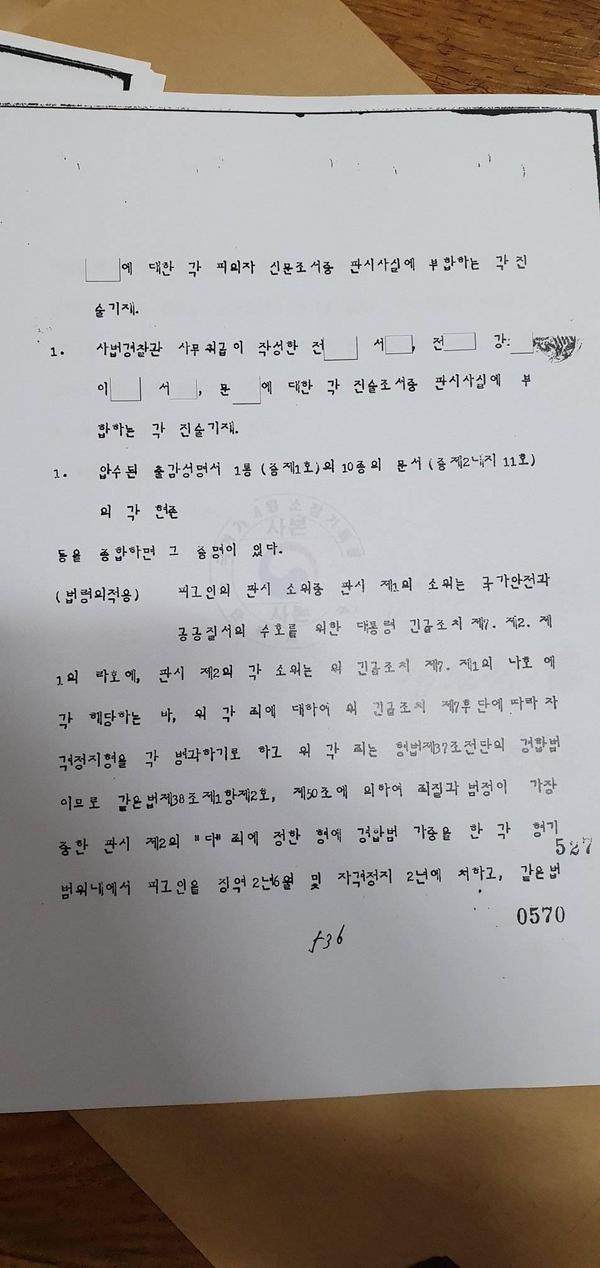 에 대한 각 피의자 신문조서중 판시사실에 부합하는 각 진
술기재.
1. 사법경찰관 사무취급이 작성한 전 서 , 전 강
이 서 , 문 에 대한 각 진술조서중 판시사실에 부
합하는 각 진술기재.
1. 압수된 출감성명서 1통 (증제1호)의 10종의 문서 (증제2내지 11호)
의 각 현존
등을 종합하면 그 증명이 있다.
(법령의적용) 피고인의 판시 소위중 판시 제1의 소위는 국가안전과
공공질서의 수호를 위한 대통령 긴급조치 제9. 제2. 제
1의 라호에, 판시 제2의 각 소위는 위 긴급조치 제9. 제1의 나호 에
각 해당하는 바, 위 각 죄에 대하여 위 긴급조치 제9후단에따라 자
격정지형을 각 병과하기로 하고 위 각 죄는 형법제37조전단의 경합범
이므로 같은법제38조제1항제2호, 제50조에 의하여 죄질과 범정이 가장
중한 판시 제2의 "다"죄에 정한 형에 경합범 가중을 한 각 형기
범위내에서 피고인을 징역 2년6월 및 자격정지 2년에 처하고, 같은법
527
0570
536
사본
사본